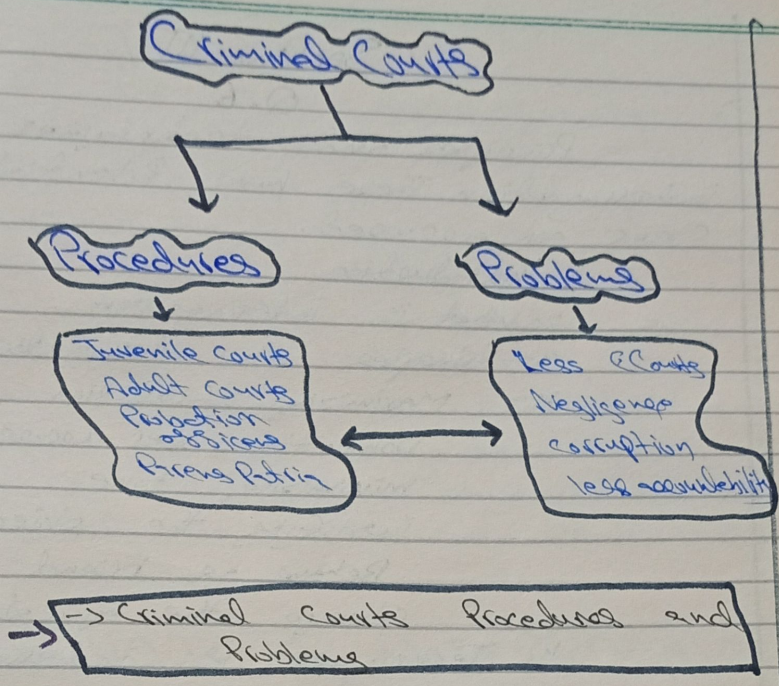 Criminal Courts
Procedures
Problems
Juvenile Courts
Adult Courts
Probation
officers
Parens Patria
Less CCourts
Negligence
corruption
less accountability
-> Criminal Courts Procedures and
Problems